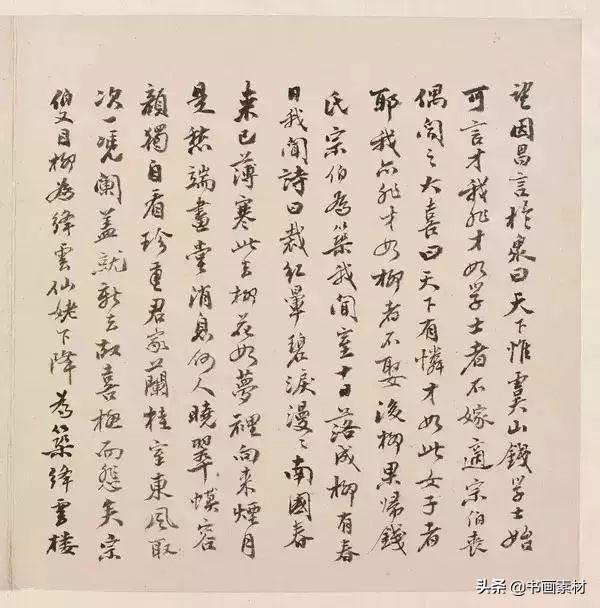 望因昌言於衆曰天下惟虞山錢学士始
可言才我非才如学士者不嫁適宗伯喪
偶闻之大喜曰天下有憐才如此女子者
耶我亦非才如柳者不娶後柳果帰錢
氏宗伯為築我闻室十日落成柳有春
日我闻詩曰裁红暈碧淚漫〻南國春
来已薄寒此去柳花如夢裡向来煙月
是愁端畫堂消息何人曉翠幙容
顏獨自看珍重君家蘭桂室東風取
次一凭闌盖就新去故喜極而怨矣宗
伯又目柳為绛雲仙姥下降為築绛雲楼
头条 @书画素材